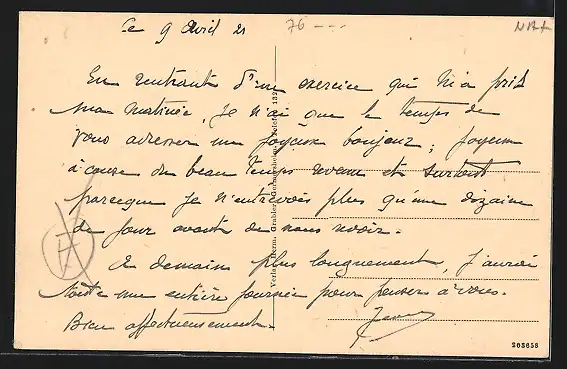 Ce 9 Avril 21
76
En rentrant d'un exercice qui m'a pris
ma matinée, je n'ai que le temps de
vous adresser un joyeux bonjour, joyeux
à cause du beau temps revenu et surtout
parceque je n'entrevois plus qu'une dizaine
de jour avant de nous revoir.
A demain plus longuement, j'aurai
toute une entière journée pour penser à vous.
Bien affectueusement.
Verlag Herm. Grabler, Germersheim, Telefon 132
203858